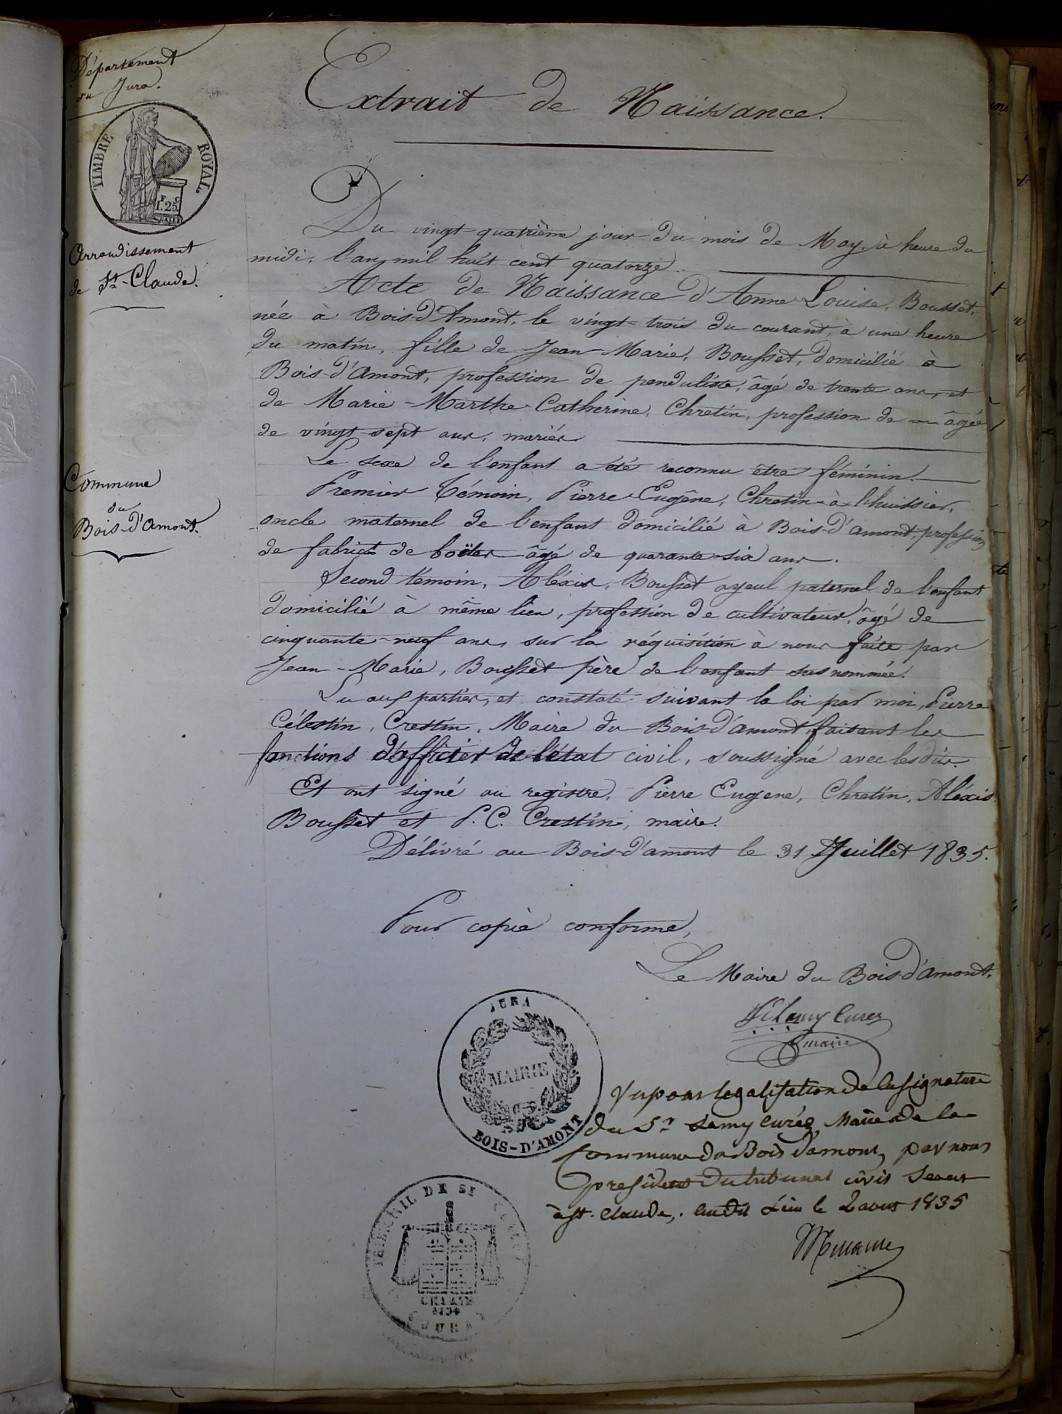 Département
du Jura.
Extrait de Naissance.
TIMBRE ROYAL
1.25
Arrondissement
de St-Claude.
Du vingt-quatrième jour du mois de May à heure du
midi, l'an mil huit cent quatorze.
Acte de Naissance d'Anne Louise, Bousset,
née à Bois-d'Amont, le vingt-trois du courant, à une heure
du matin, fille de Jean-Marie, Bousset, domicilié à
Bois-d'amont, profession de penduliste, âgé de trente ans, et
de Marie-Marthe Catherine, Chretin, profession de — âgée
de vingt sept ans, mariés
Commune
du
Bois-d'Amont.
Le sexe de l'enfant a été reconnu être féminin.
Premier Témoin, Pierre Eugène, Chretin à l'huissier,
oncle maternel de l'enfant domicilié à Bois-d'amont profession
de fabrict de boëtes âgé de quarante-six ans.
Second témoin, Aléxis, Bousset ayeul paternel de l'enfant
domicilié à même lieu, profession de cultivateur, âgé de
cinquante-neuf ans, sur la réquisition à nous faite par
Jean-Marie, Bousset père de l'enfant sus nommée.
Lu aux parties, et constaté suivant la loi par moi, Pierre
Célestin, Crestin, Maire du Bois-d'amont faisant les
fonctions d'officier de l'état civil, soussigné avec lesdits.
Et ont signé au registre, Pierre Eugene, Chretin, Aléxis
Bousset et P. C. Crestin, maire.
Délivré au Bois-d'amont le 31 Juillet 1835.
Pour copie conforme,
Le Maire du Bois d'amont,
Lamy Curez
maire
JURA
MAIRIE
BOIS-D'AMONT
Vu pour legalisation de la signature
du Sr. Lamy Curéz, Maire de la
Commune du Bois d'amont, par nous
président du tribunal civil séant
à St. Claude, audit Lieu le 2 aout 1835
TRIBUNAL DE ST CLAUDE
JURA